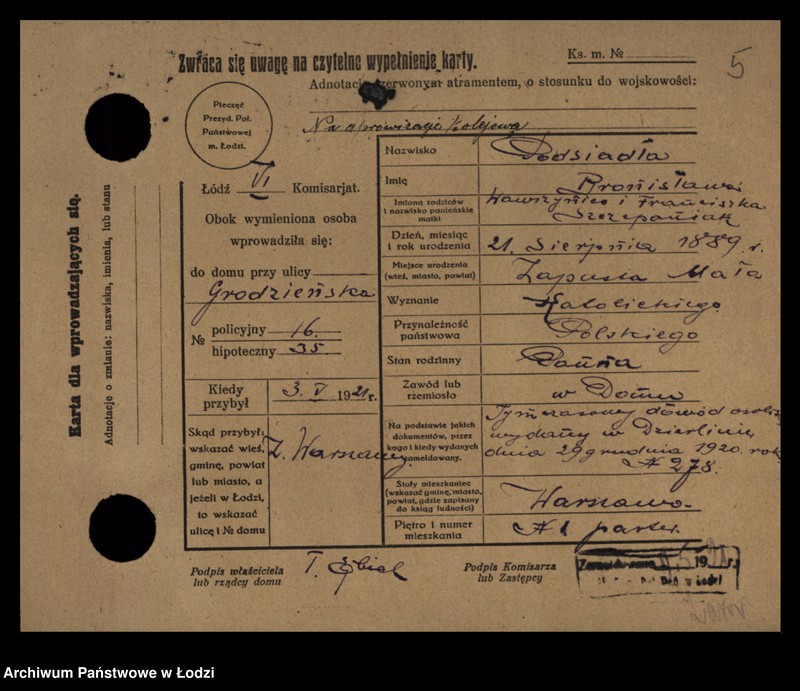 Zwraca się uwagę na czytelne wypełnienie karty.
Ks. m. №
5
Adnotacje czerwonym atramentem, o stosunku do wojskowości:
Na aprowizację kolejową
Pieczęć
Prezyd. Pol.
Państwowej
m. Łodzi.
Karta dla wprowadzających się.
Adnotacje o zmianie: nazwiska, imienia, lub stanu
Łódź VI Komisarjat.
Obok wymieniona osoba
wprowadziła się:
do domu przy ulicy
Grodzieńska
№ policyjny 16
hipoteczny 35
Kiedy przybył 3. V 1921 r.
Skąd przybył,
wskazać wieś,
gminę, powiat
lub miasto, a
jeżeli w Łodzi,
to wskazać
ulicę i № domu
Z. Warszawy
Nazwisko Podsiadła
Imię Bronisława
Imiona rodziców i nazwisko panieńskie matki Wawrzyniec i Franciszka Szczepaniak
Dzień, miesiąc i rok urodzenia 21. Sierpnia 1889 r.
Miejsce urodzenia (wieś, miasto, powiat) Zapusta Mała
Wyznanie Katolickiego
Przynależność państwowa Polskiego
Stan rodzinny Panna
Zawód lub rzemiosło w Domu
Na podstawie jakich dokumentów, przez kogo i kiedy wydanych zameldowany.
Tymczasowy dowód
wydany w
dnia 29 grudnia 1920 rok
№ 278.
Stały mieszkaniec (wskazać gminę, miasto, powiat, gdzie zapisany do ksiąg ludności) Warszawa.
Piętro i numer mieszkania № 1 parter.
Podpis właściciela
lub rządcy domu
Podpis Komisarza
lub Zastępcy
Archiwum Państwowe w Łodzi